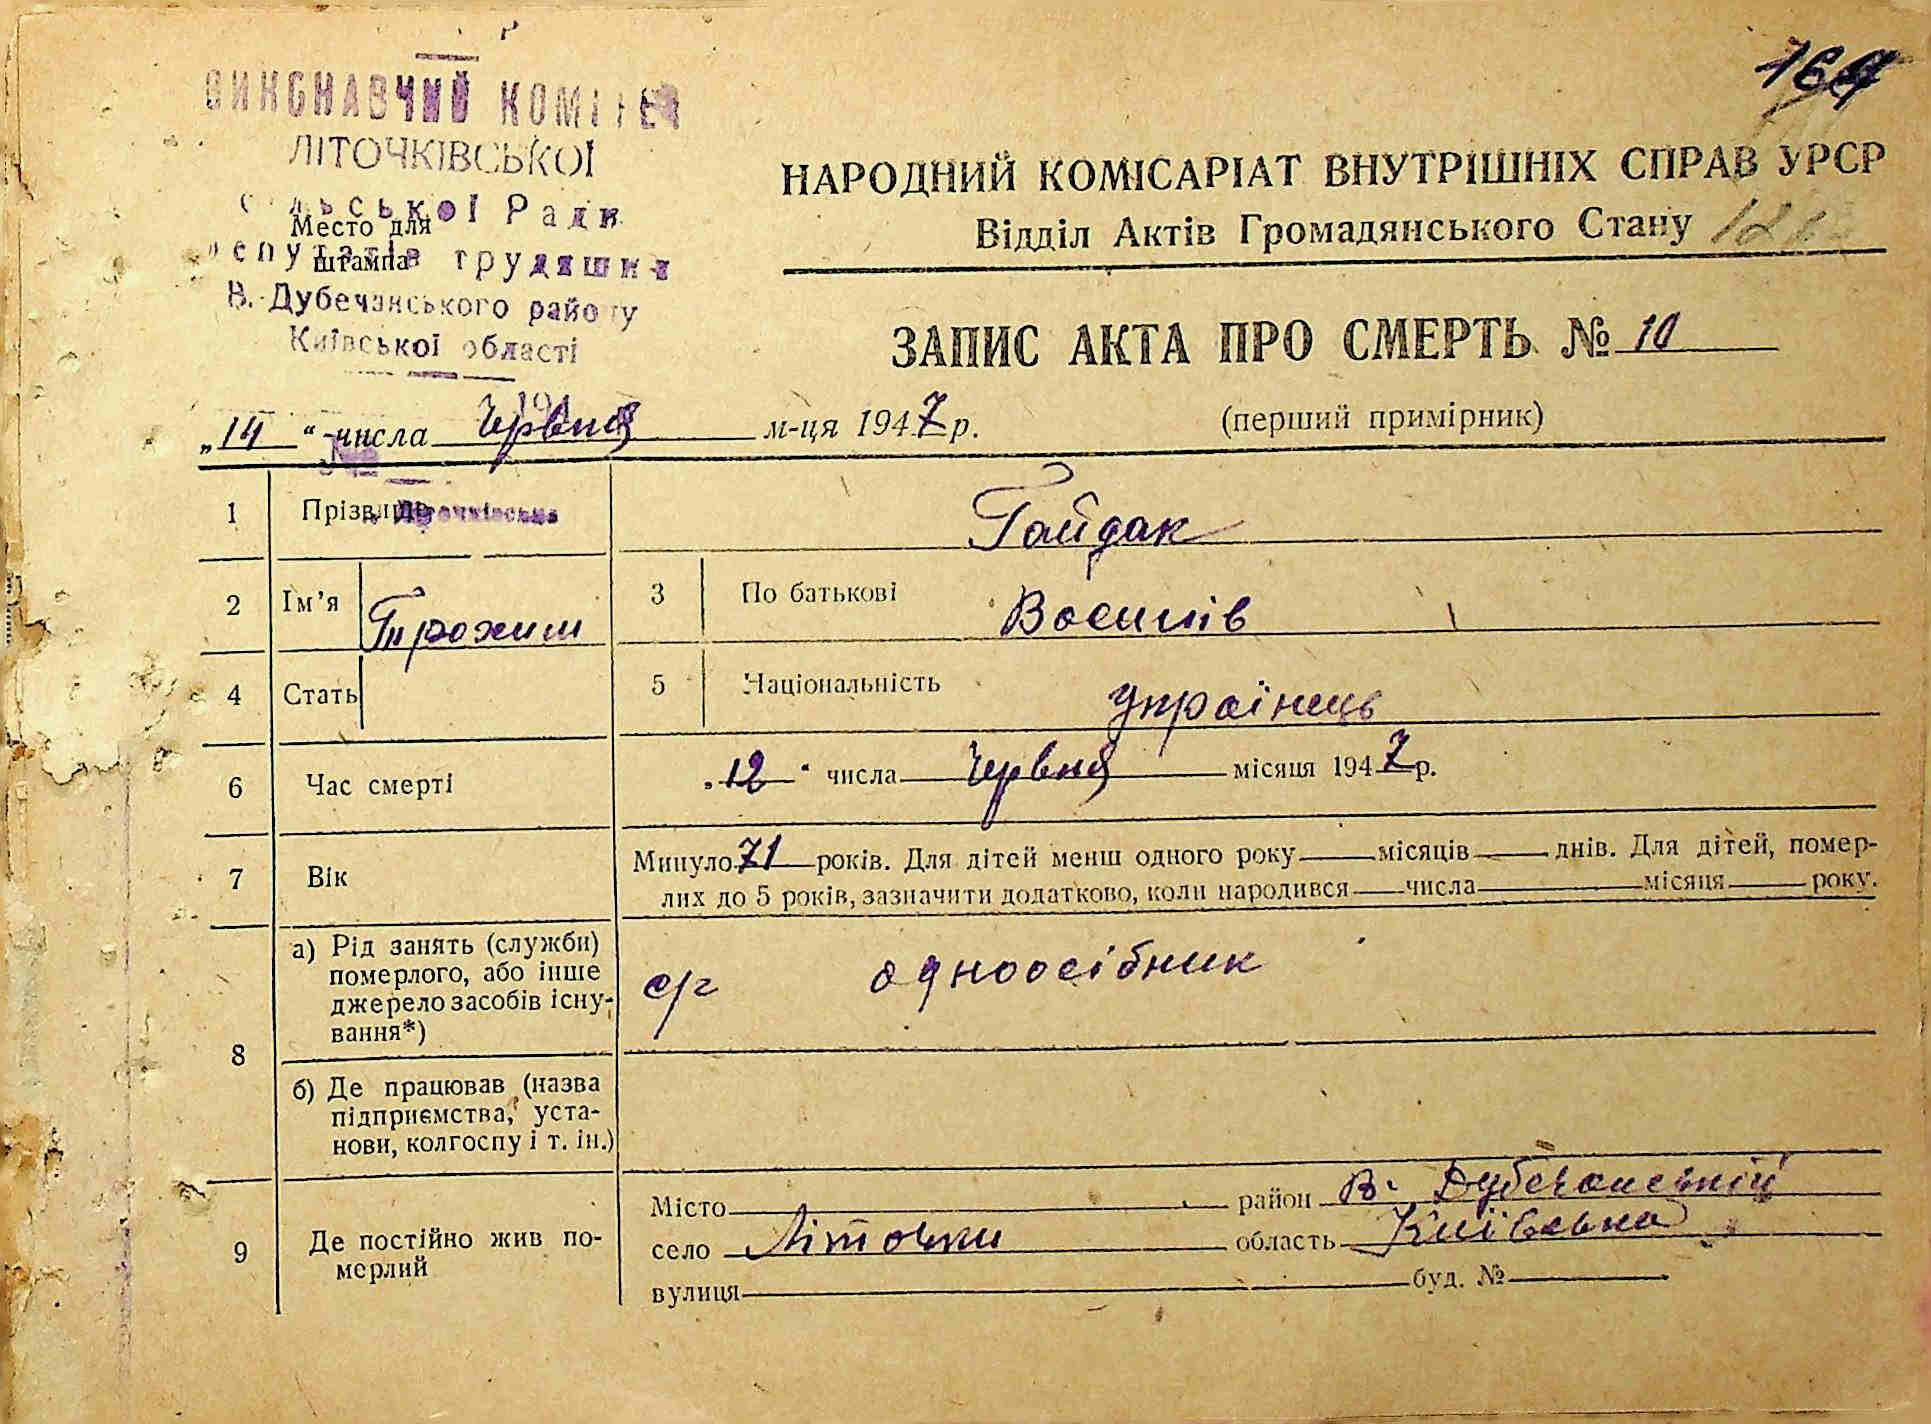 164
ВИКОНАВЧИЙ КОМІТЕТ
ЛІТОЧКІВСЬКОЇ
сільської Ради
Место для
депутатів трудящих
штампа
В.-Дубечанського району
Київської області
НАРОДНИЙ КОМІСАРІАТ ВНУТРІШНІХ СПРАВ УРСР
Відділ Актів Громадянського Стану
ЗАПИС АКТА ПРО СМЕРТЬ № 10
„14“ числа Червня м-ця 1947 р.
(перший примірник)
1 Прізвище Гайдак
2 Ім'я Трохим 3 По батькові Василів
4 Стать 5 Національність українець
6 Час смерті „12“ числа Червня місяця 1947 р.
7 Вік Минуло 71 років. Для дітей менш одного року місяців днів. Для дітей, помер-
лих до 5 років, зазначити додатково, коли народився числа місяця року.
8 а) Рід занять (служби)
померлого, або інше
джерело засобів існу-
вання*)
с/г одноосібник
б) Де працював (назва
підприємства, уста-
нови, колгоспу і т. ін.)
9 Де постійно жив по-
мерлий
Місто район В. Дубечанський
село Літочки область Київська
вулиця буд. №